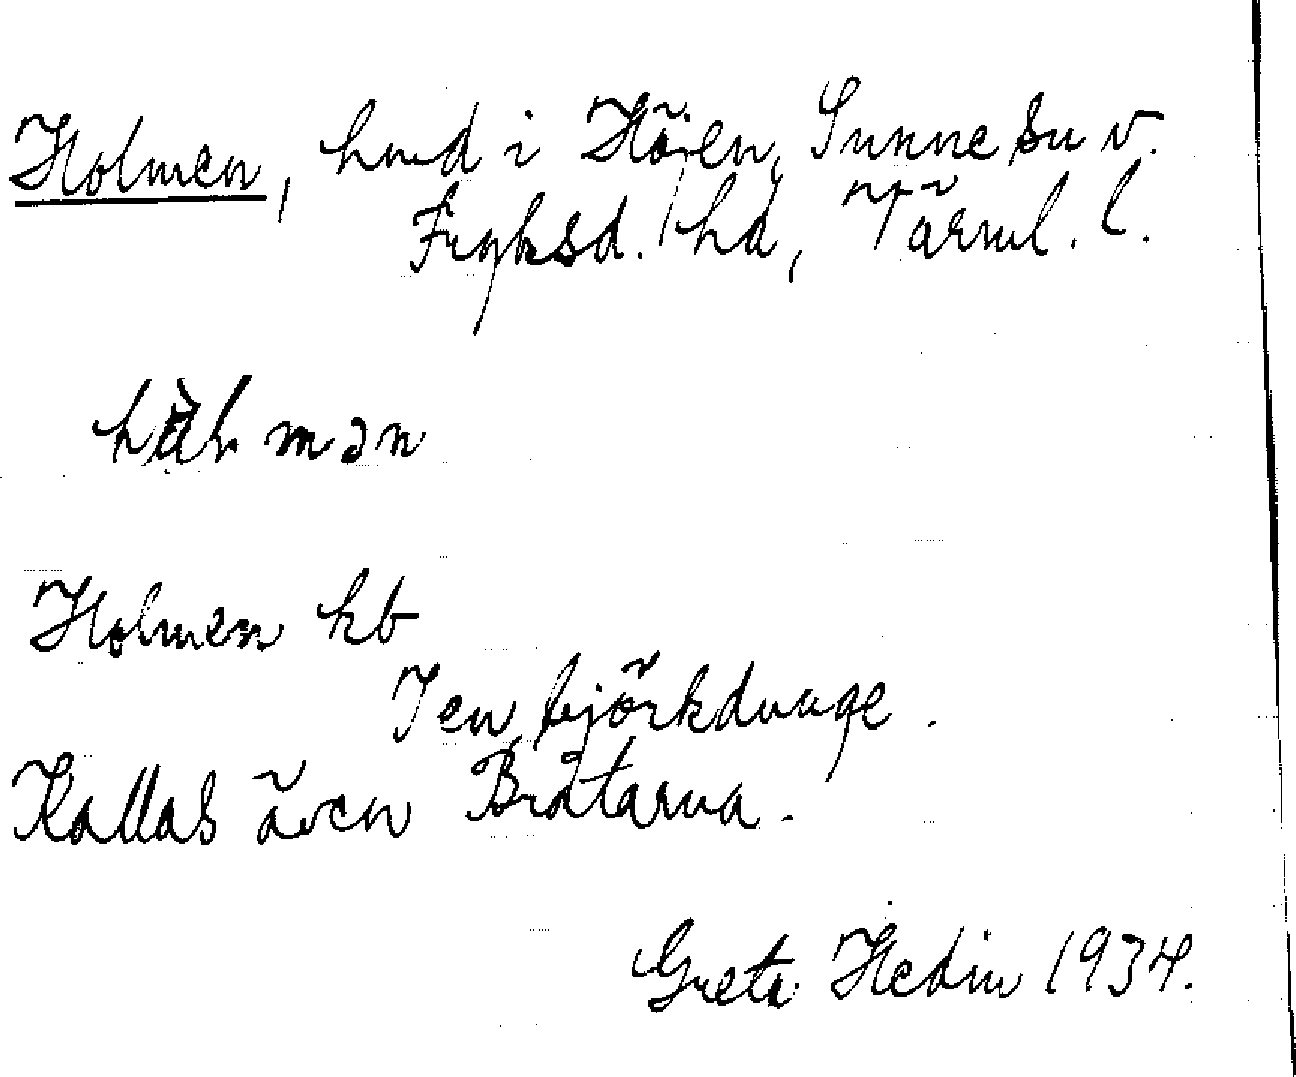 Holmen, hmd i Höjen, Sunne sn v.
Fryksd. hd, Värml. l.
Holmen kb
I en björkdunge.
Kallas även Bråtarna.
Greta Hedin 1934.